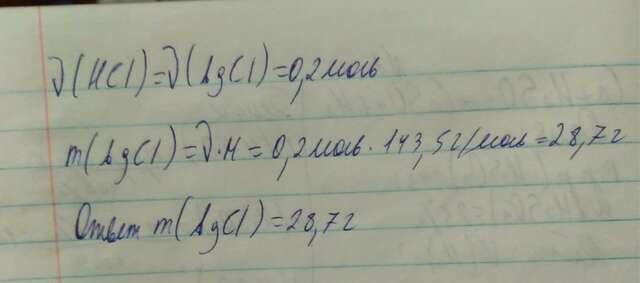 ν(HCl)=ν(AgCl)=0,2моль
m(AgCl)=ν·M=0,2моль·143,5г/моль=28,7г
Ответ m(AgCl)=28,7г